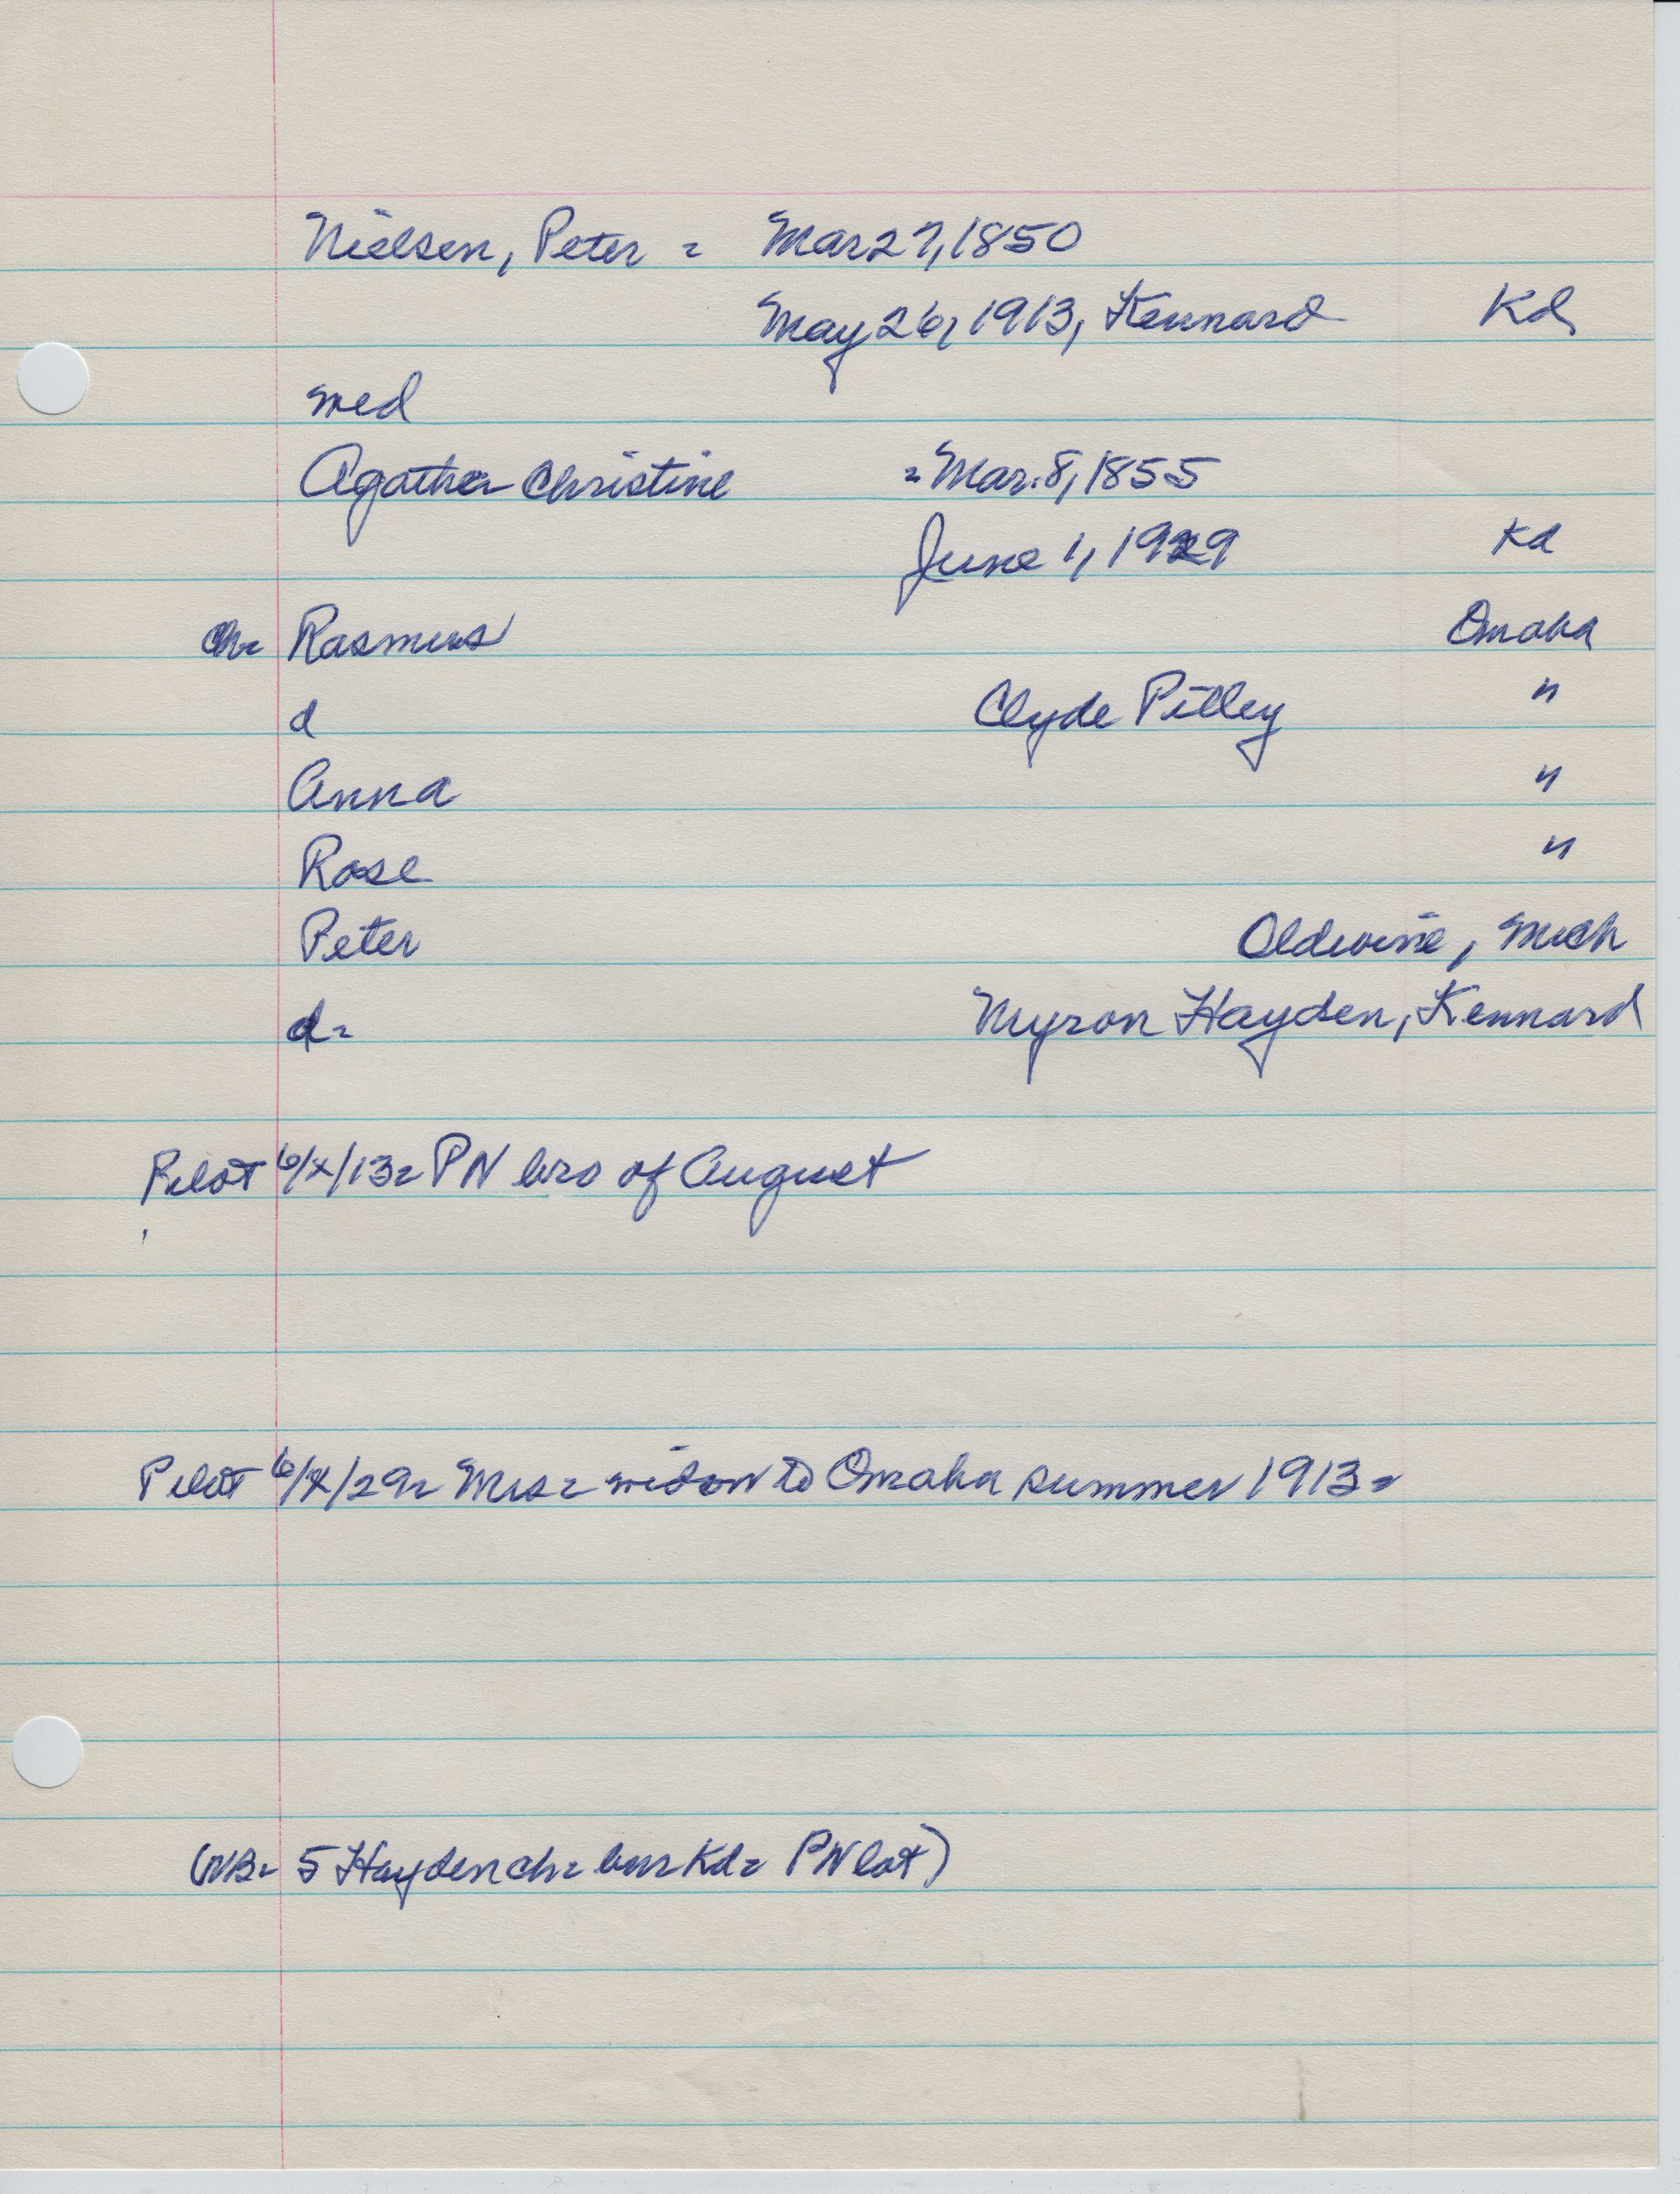 Nielsen, Peter = Mar 27, 1850
May 26, 1913, Kennard Kd
med
Agatha Christine = Mar. 8, 1855
June 1, 1929 Kd
Ch= Rasmus Omaha
d Clyde Pilley "
Anna "
Rose "
Peter Oldwine, Mich
d= Myron Hayden, Kennard
Pilot 6/X/13= PN bro of August
Pilot 6/X/29= Mrs= widow to Omaha summer 1913=
(NB= 5 Hayden ch= bur Kd= PN lot)